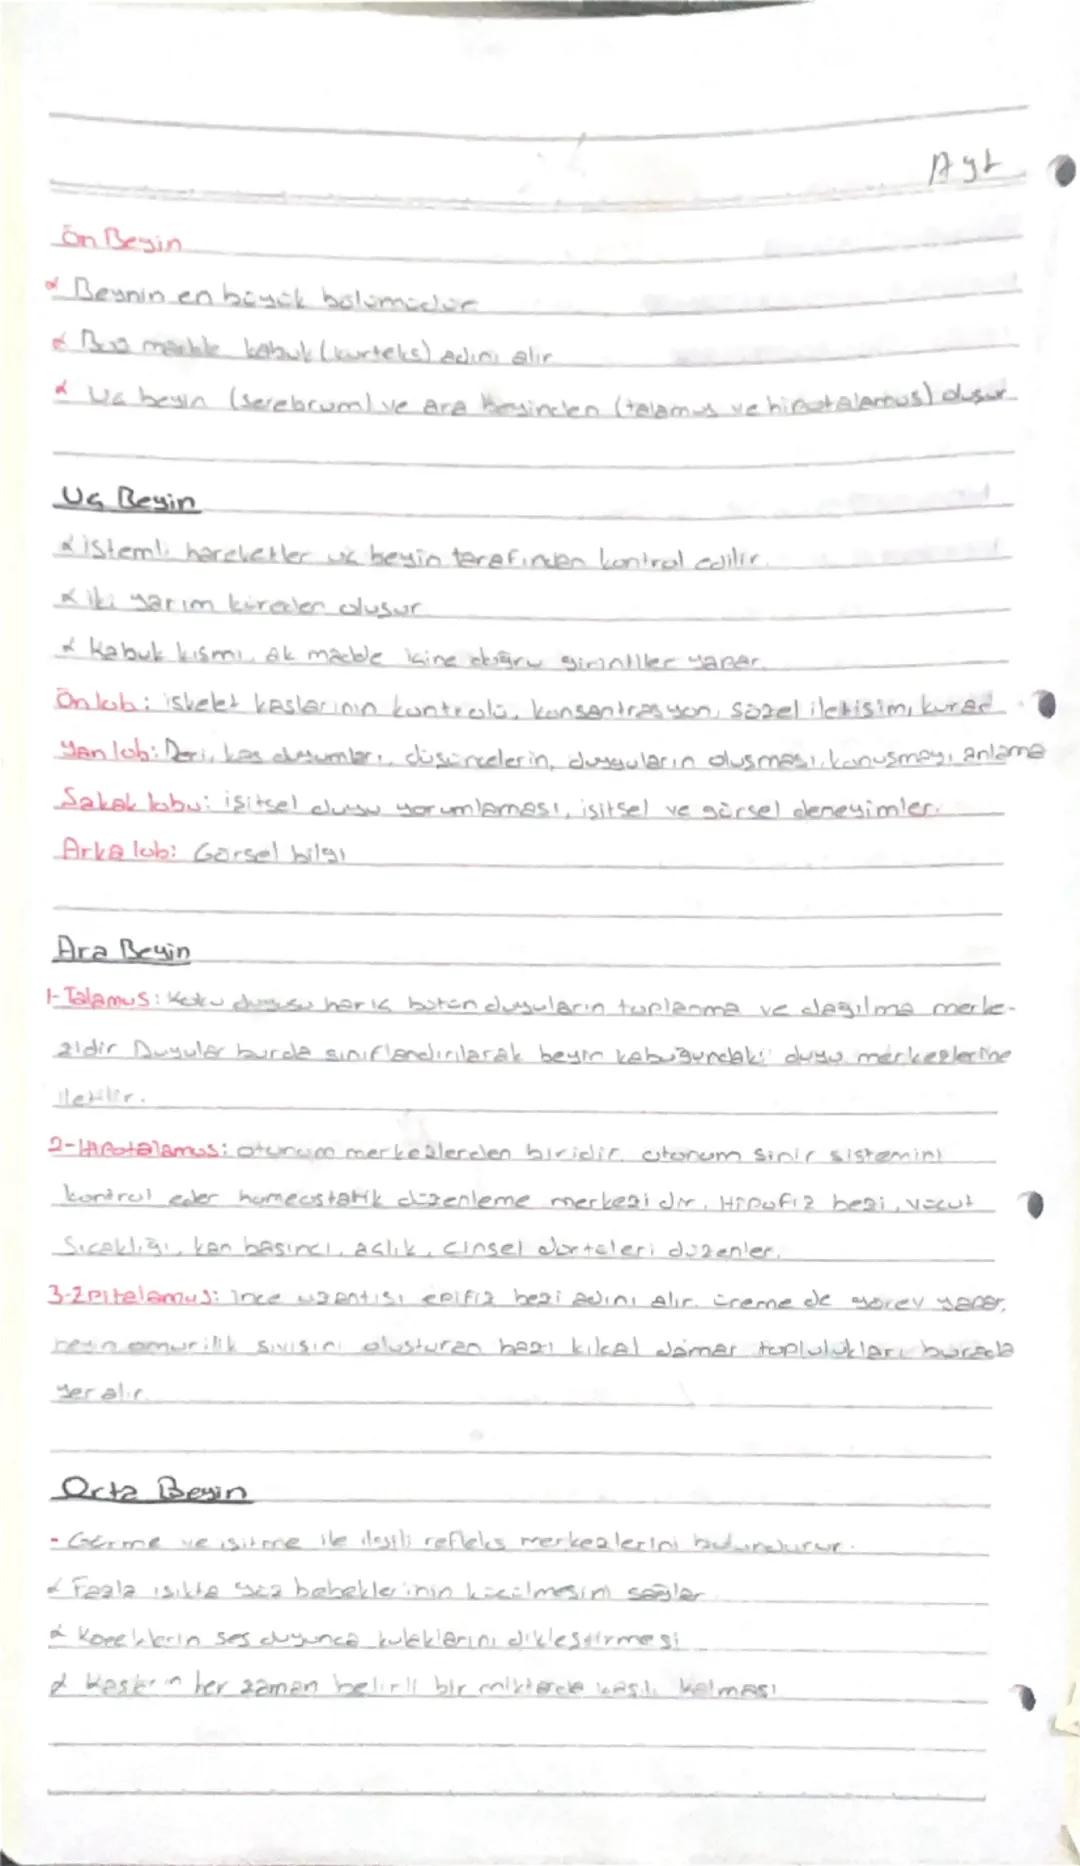 Ayt
Ön Beyin
Beynin en büyük bölümüdür
Boz madde kabuk (korteks) adını alır
Uç beyin (serebrum) ve ara beyinden (talamus ve hipotalamus) oluşur
Uç Beyin
istemli hareketler uç beyin tarafından kontrol edilir.
iki yarım küreden oluşur
Kabuk kısmı, ak madde içine doğru girintiler yapar.
Ön lob: iskelet kaslarının kontrolü, konsantrasyon, sözel iletişim,
Yan lob: Deri, kas duyumları, düşüncelerin, duyguların oluşması, konuşmayı anlama
Şakak lobu: işitsel duyu yorumlaması, işitsel ve görsel deneyimler.
Arka lob: Görsel bilgi
Ara Beyin
1-Talamus: Koku duyusu hariç bütün duyuların toplanma ve dağılma merke-
zidir Duyular burda sınıflandırılarak beyin kabuğundaki duyu merkezlerine
iletilir.
2-Hipotalamus: otonom merkezlerden biridir. otonom sinir sistemini
kontrol eder homeostatik düzenleme merkezidir. Hipofiz bezi, vücut
Sıcaklığı, kan basıncı, açlık, cinsel dürtüleri düzenler.
3-Epitelamus: ince uzantısı epifiz bezi adını alır. üreme de görev yapar.
beyin omurilik sıvısını oluşturan bazı kılcal damar toplulukları burada
yer alır.
Orta Beyin
- Görme ve işitme ile ilgili refleks merkezlerini bulundurur.
Fazla ışıkta göz bebeklerinin küçülmesini sağlar
Köpeklerin ses duyunca kulaklarını dikleştirmesi
Kasların her zaman belirli bir miktarda kasılı kalması